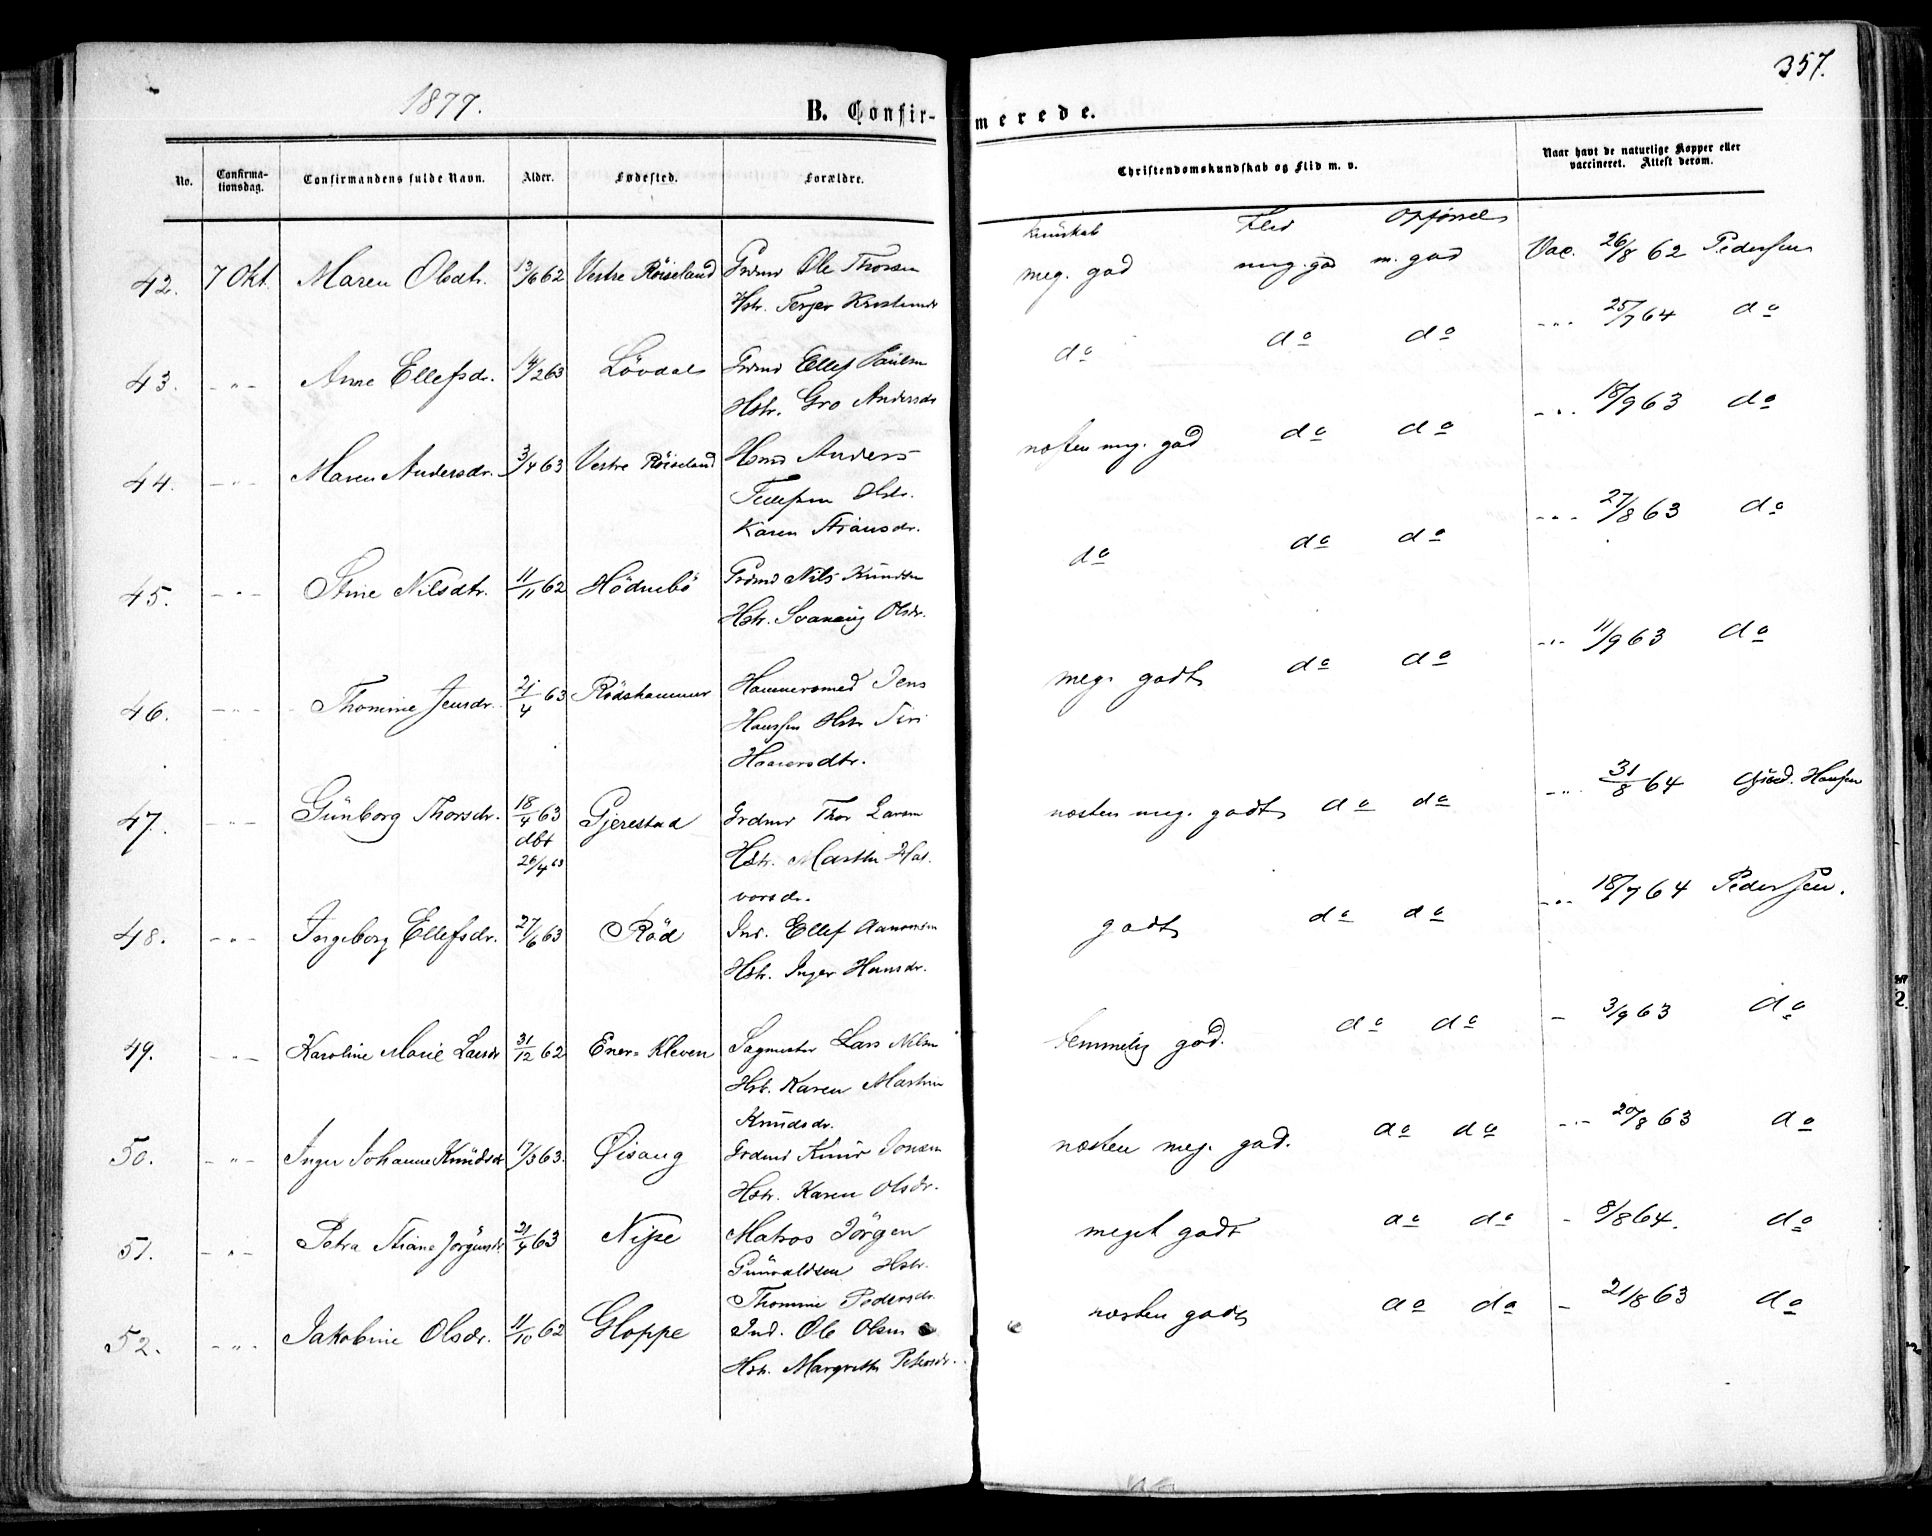 357.
1877.
B. Confirmerede.
No. Confirmationsdag. Confirmandens fulde Navn. Alder. Fødested. Forældre. Christendomskundskab og Flid m. v. Naar havt de naturlige Kopper eller vaccineret. Attest derom.
Kunskab Flid Opførsel
42. 7 Okt. Maren Olsdtr. 13/6 62 Vestre Röiseland Grdmd Ole Thorsen meg. god meg. god m. god Vac. 26/8 62 Pedersen
Hstr. Terjer
43. -"- Ane Ellefsdr. 14/2 63 Lövdal Grdmd Ellef Paulsen do do do -"- 25/7 64 do
Hstr. Gro Andersdr
44. -"- Maren Andersdr. 3/4 63 Vestre Röiseland Hsmd Anders næsten meg. god do do -"- 18/9 63 do
Tellefsen Hstr.
Karen Stiansdr.
45. -"- Stine Nilsdtr. 11/11 62 Hödnebö Grdmd Nils Knudsen do do do -"- 27/8 63 do
Hstr. Svanaug Olsdr.
46. -"- Thomine Jensdr. 21/4 63 Rödshammer Hammersmed Jens meg. godt do do -"- 11/9 63 do
Hanssen Hstr Siri
Haaversdtr.
47. -"- Günborg Thorsdr. 18/4 63 Gjerestad Grdmd Thor Larsen næsten meg. godt do do -"- 31/8 64 Hansen
dbt
26/4 63
Hstr. Marthe Halvorsdr.
48. -"- Ingeborg Ellefsdr. 27/6 63 Röd Ind. Ellef Aanonsen godt do do -"- 18/7 64 Pedersen.
Hstr. Inger Hansdr.
49. -"- Karoline Marie Larsdr 31/12 62 Ener-Kleven Sagmester Lars Nilsen temmelig god. do do - 3/9 63 do
Hst. Karen Martine
Knudsdr.
50. -"- Inger Johanne Knudsdr 17/3 63. Øisang Grdmd Knud Jonsen næsten meg. god. do do -"- 20/8 63 do
Hstr. Karen Olsdr.
51. -"- Petra Stiane Jörgensdr 21/4 63 Nipe Matros Jörgen meget godt do do - 8/8 64. do
Gunvaldsen Hstr.
Thomine Pedersdr.
52. -"- Jakobine Olsdr. 11/10 62 Gloppe Ind. Ole Olsen næsten godt do do - 21/8 63 do
Hstr. Margrethe Petersdr.